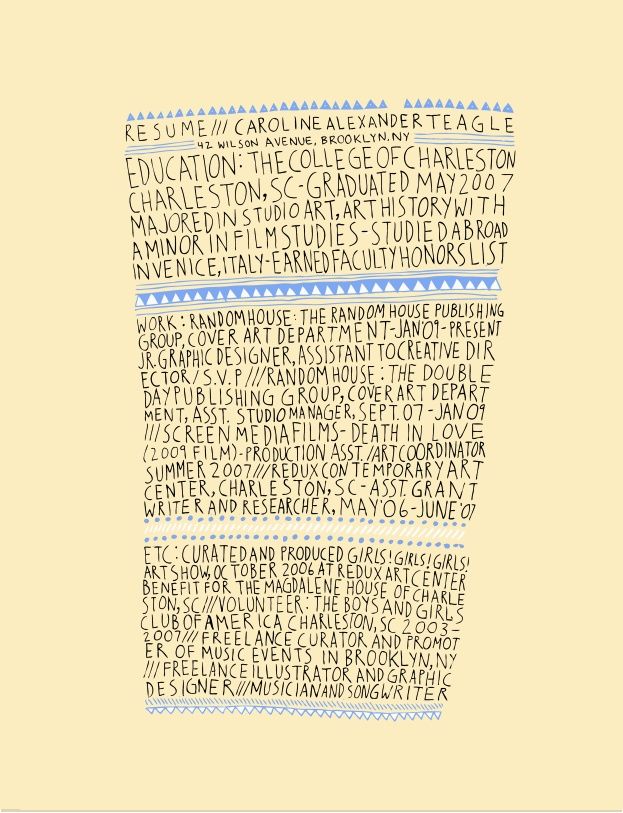 RESUME/// CAROLINE ALEXANDER TEAGLE
42 WILSON AVENUE, BROOKLYN, NY
EDUCATION: THE COLLEGE OF CHARLESTON
CHARLESTON, SC-GRADUATED MAY 2007
MAJORED IN STUDIO ART, ART HISTORY WITH
A MINOR IN FILM STUDIES-STUDIED ABROAD
IN VENICE, ITALY-EARNED FACULTY HONORS LIST
WORK: RANDOM HOUSE: THE RANDOM HOUSE PUBLISHING
GROUP, COVER ART DEPARTMENT-JAN'09-PRESENT
JR. GRAPHIC DESIGNER, ASSISTANT TO CREATIVE DIR
ECTOR/S.V.P///RANDOM HOUSE: THE DOUBLE
DAY PUBLISHING GROUP, COVER ART DEPART
MENT, ASST. STUDIO MANAGER, SEPT. 07-JAN 09
///SCREEN MEDIA FILMS-DEATH IN LOVE
(2009 FILM)-PRODUCTION ASST./ART COORDINATOR
SUMMER 2007///REDUX CONTEMPORARY ART
CENTER, CHARLESTON, SC-ASST. GRANT
WRITER AND RESEARCHER, MAY'06-JUNE'07
ETC: CURATED AND PRODUCED GIRLS! GIRLS! GIRLS!
ART SHOW, OCTOBER 2006 AT REDUX ART CENTER
BENEFIT FOR THE MAGDALENE HOUSE OF CHARLE
STON, SC///VOLUNTEER: THE BOYS AND GIRLS
CLUB OF AMERICA CHARLESTON, SC 2003-
2007/// FREELANCE CURATOR AND PROMOT
ER OF MUSIC EVENTS IN BROOKLYN, NY
///FREELANCE ILLUSTRATOR AND GRAPHIC
DESIGNER///MUSICIAN AND SONGWRITER